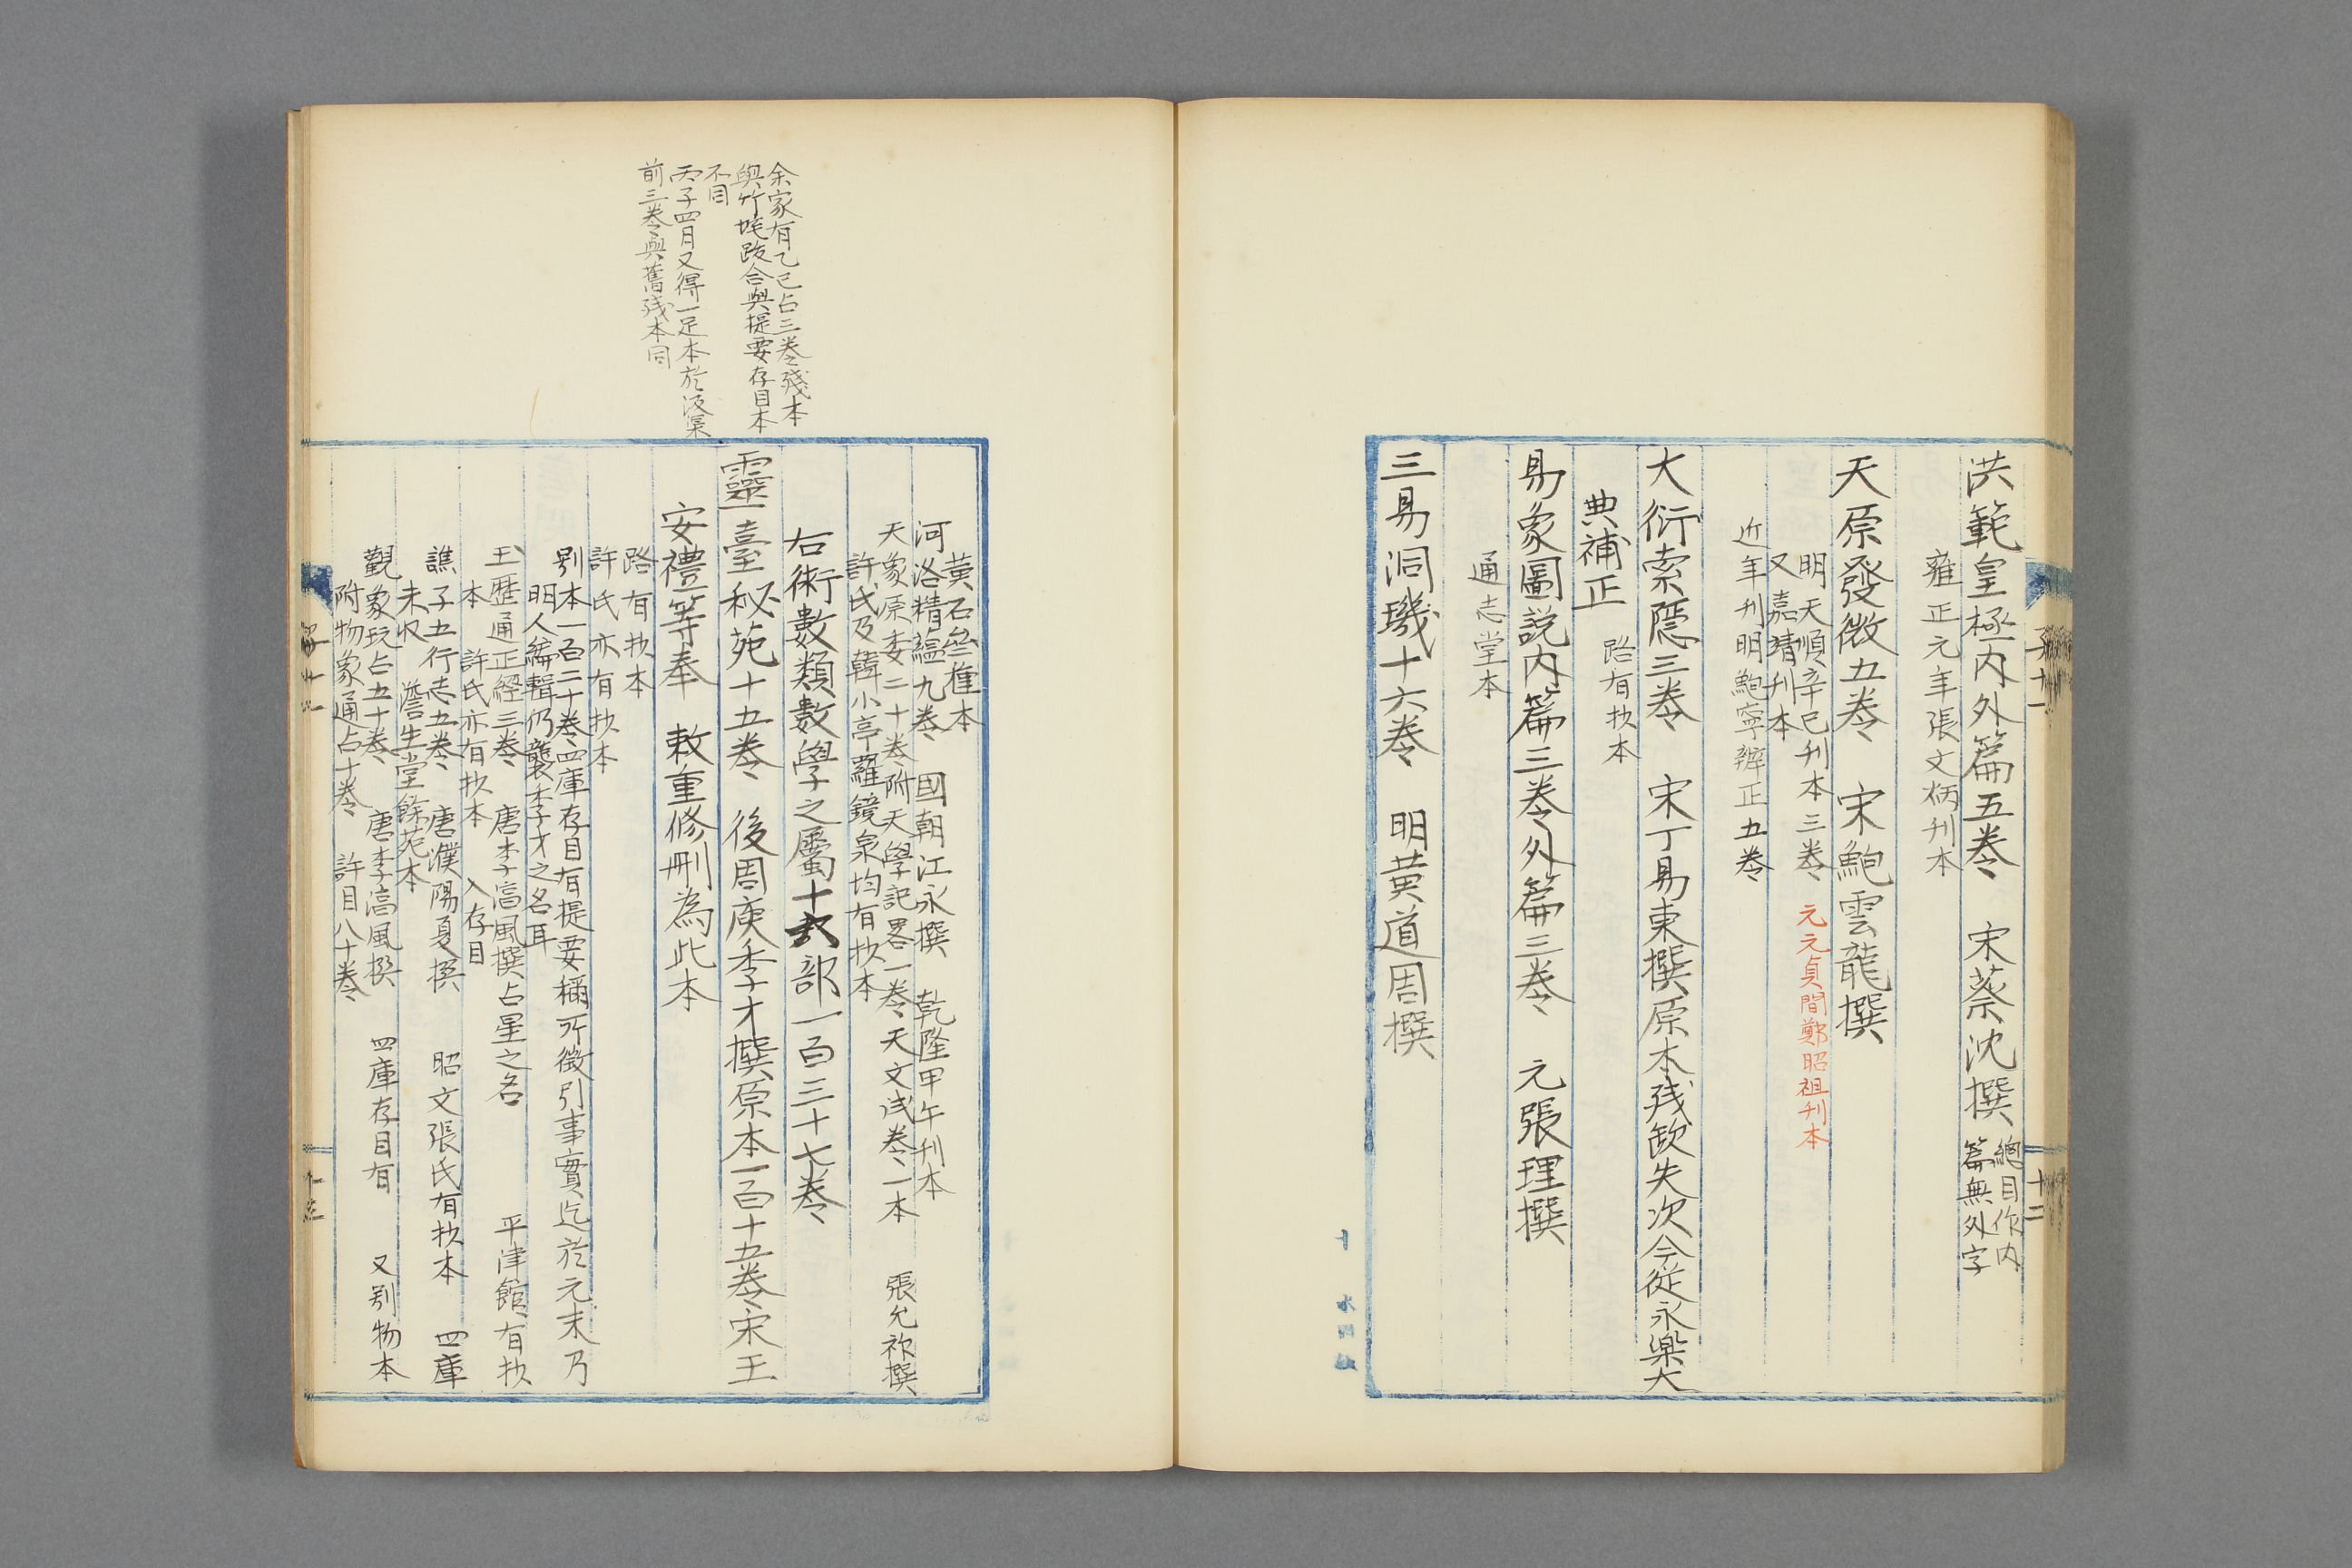 洪範皇極内外篇五卷　宋蔡沈撰
總目作内
篇無外字
雍正元年張文炳刊本
天原發微五卷　宋鮑雲龍撰
明天順辛巳刊本三卷　元元貞間鄭昭祖刊本
又嘉靖刊本
近年刊明鮑寧辨正五卷
大衍索隱三卷　宋丁易東撰原本殘缺失次今從永樂大
典補正　路有抄本
易象圖説内篇三卷外篇三卷　元張理撰
通志堂本
三易洞璣十六卷　明黄道周撰
子十一
十二
余家有乙巳占三卷殘本
與竹垞跋合與提要存目本
不同
丙子四月又得一足本於汲渠
前三卷與舊殘本同
黄石叁榷本
河洛精藴九卷　國朝江永撰　乾隆甲午刊本
天象原委二十卷附天學記畧一卷天文淺卷一本　張允祢撰
許氏及韓小亭羅鏡泉均有抄本
右術數類數學之屬十六部一百三十七卷
靈臺秘苑十五卷　後周庾季才撰原本一百十五卷宋王
安禮等奉　敕重修刪為此本
路有抄本
許氏亦有抄本
别本一百二十卷四庫存目有提要稱所徵引事實迄於元末乃
明人編輯仍襲季才之名耳
玉歷通正經三卷　唐李淳風撰占星之名　平津館有抄
本　許氏亦有抄本　入存目
譙子五行志五卷　唐濮陽夏撰　昭文張氏有抄本　四庫
未收　澹生堂餘苑本
觀象玩占五十卷　唐李淳風撰　四庫存目有　又别物本
附物象通占十卷　許目八十卷